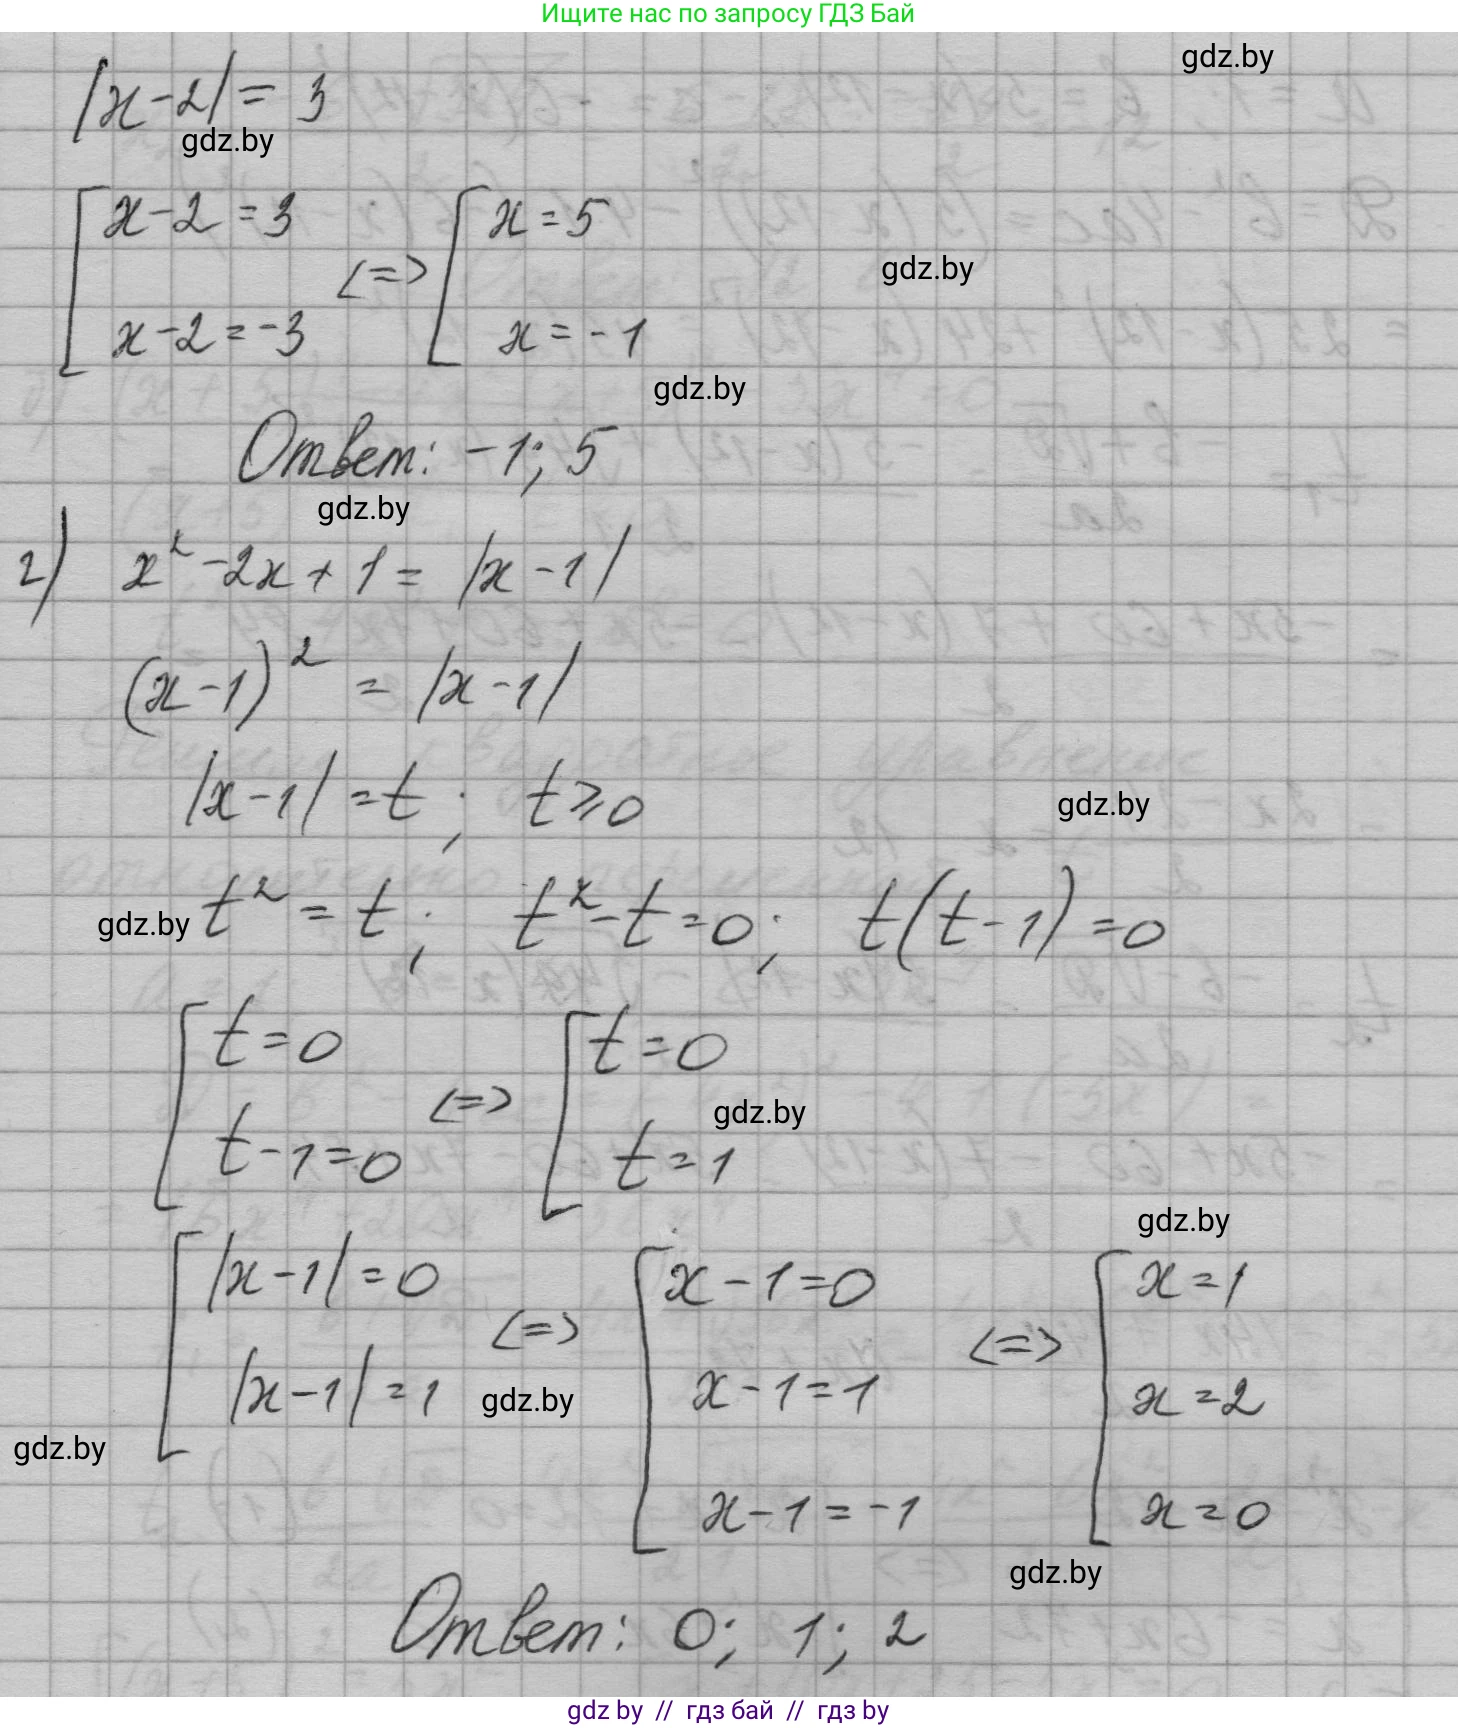 Ищите нас по запросу ГДЗ Бай
gdz.by
|x-2| = 3
gdz.by
[ x-2 = 3 <=> [ x = 5
gdz.by
x-2 = -3 x = -1
gdz.by
Ответ: -1; 5
gdz.by
г) x² - 2x + 1 = |x - 1|
(x - 1)² = |x - 1|
|x - 1| = t; t ⩾ 0
gdz.by
gdz.by t² = t; t² - t = 0; t(t - 1) = 0
[ t = 0 <=> [ t = 0
gdz.by
t - 1 = 0 t = 1
gdz.by
[ |x - 1| = 0 <=> [ x - 1 = 0 <=> [ x = 1
|x - 1| = 1 gdz.by x - 1 = 1 x = 2
gdz.by
x - 1 = -1 x = 0
gdz.by
Ответ: 0; 1; 2
gdz by // гдз бай // гдз by